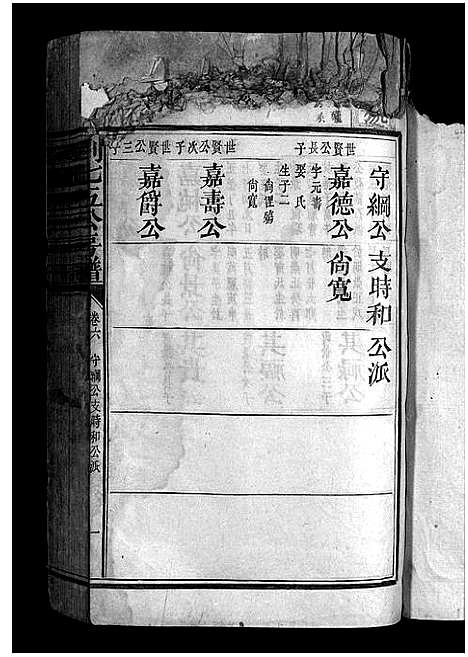 守綱公支時和公派
世賢公長子
嘉德公 尙寬
字元壽
娶 氏
生子二
尙寬
世賢公次子
嘉壽公
世賢公三子
嘉爵公
卷六 守綱公支時和公派 一